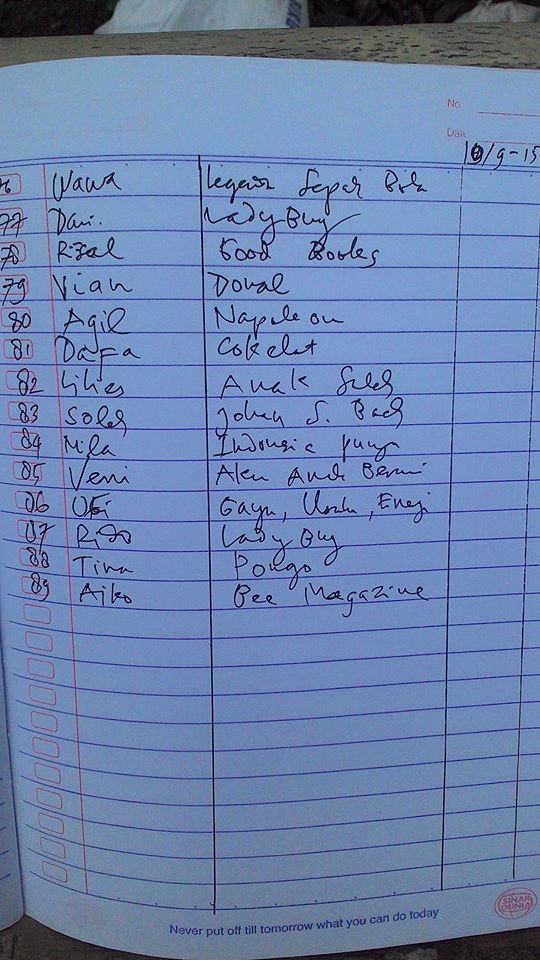 No
Date
10/9-15
76 Wawa Legenda Sepak Bola
77 Dani. Lady Bug
78 Rizal Good Books
79 Vian Donal
80 Agil Napoleon
81 Dafa Cokelat
82 Lilies Anak Saleh
83 Soleh Johan S. Bach
84 Mila Indonesia punya
85 Veni Aku Andi Berani
86 Uki Gaya, Usaha, Energi
87 Rido Lady Bug
88 Tina Pongo
89 Aiko Bee Magazine
Never put off till tomorrow what you can do today
SINAR DUNIA